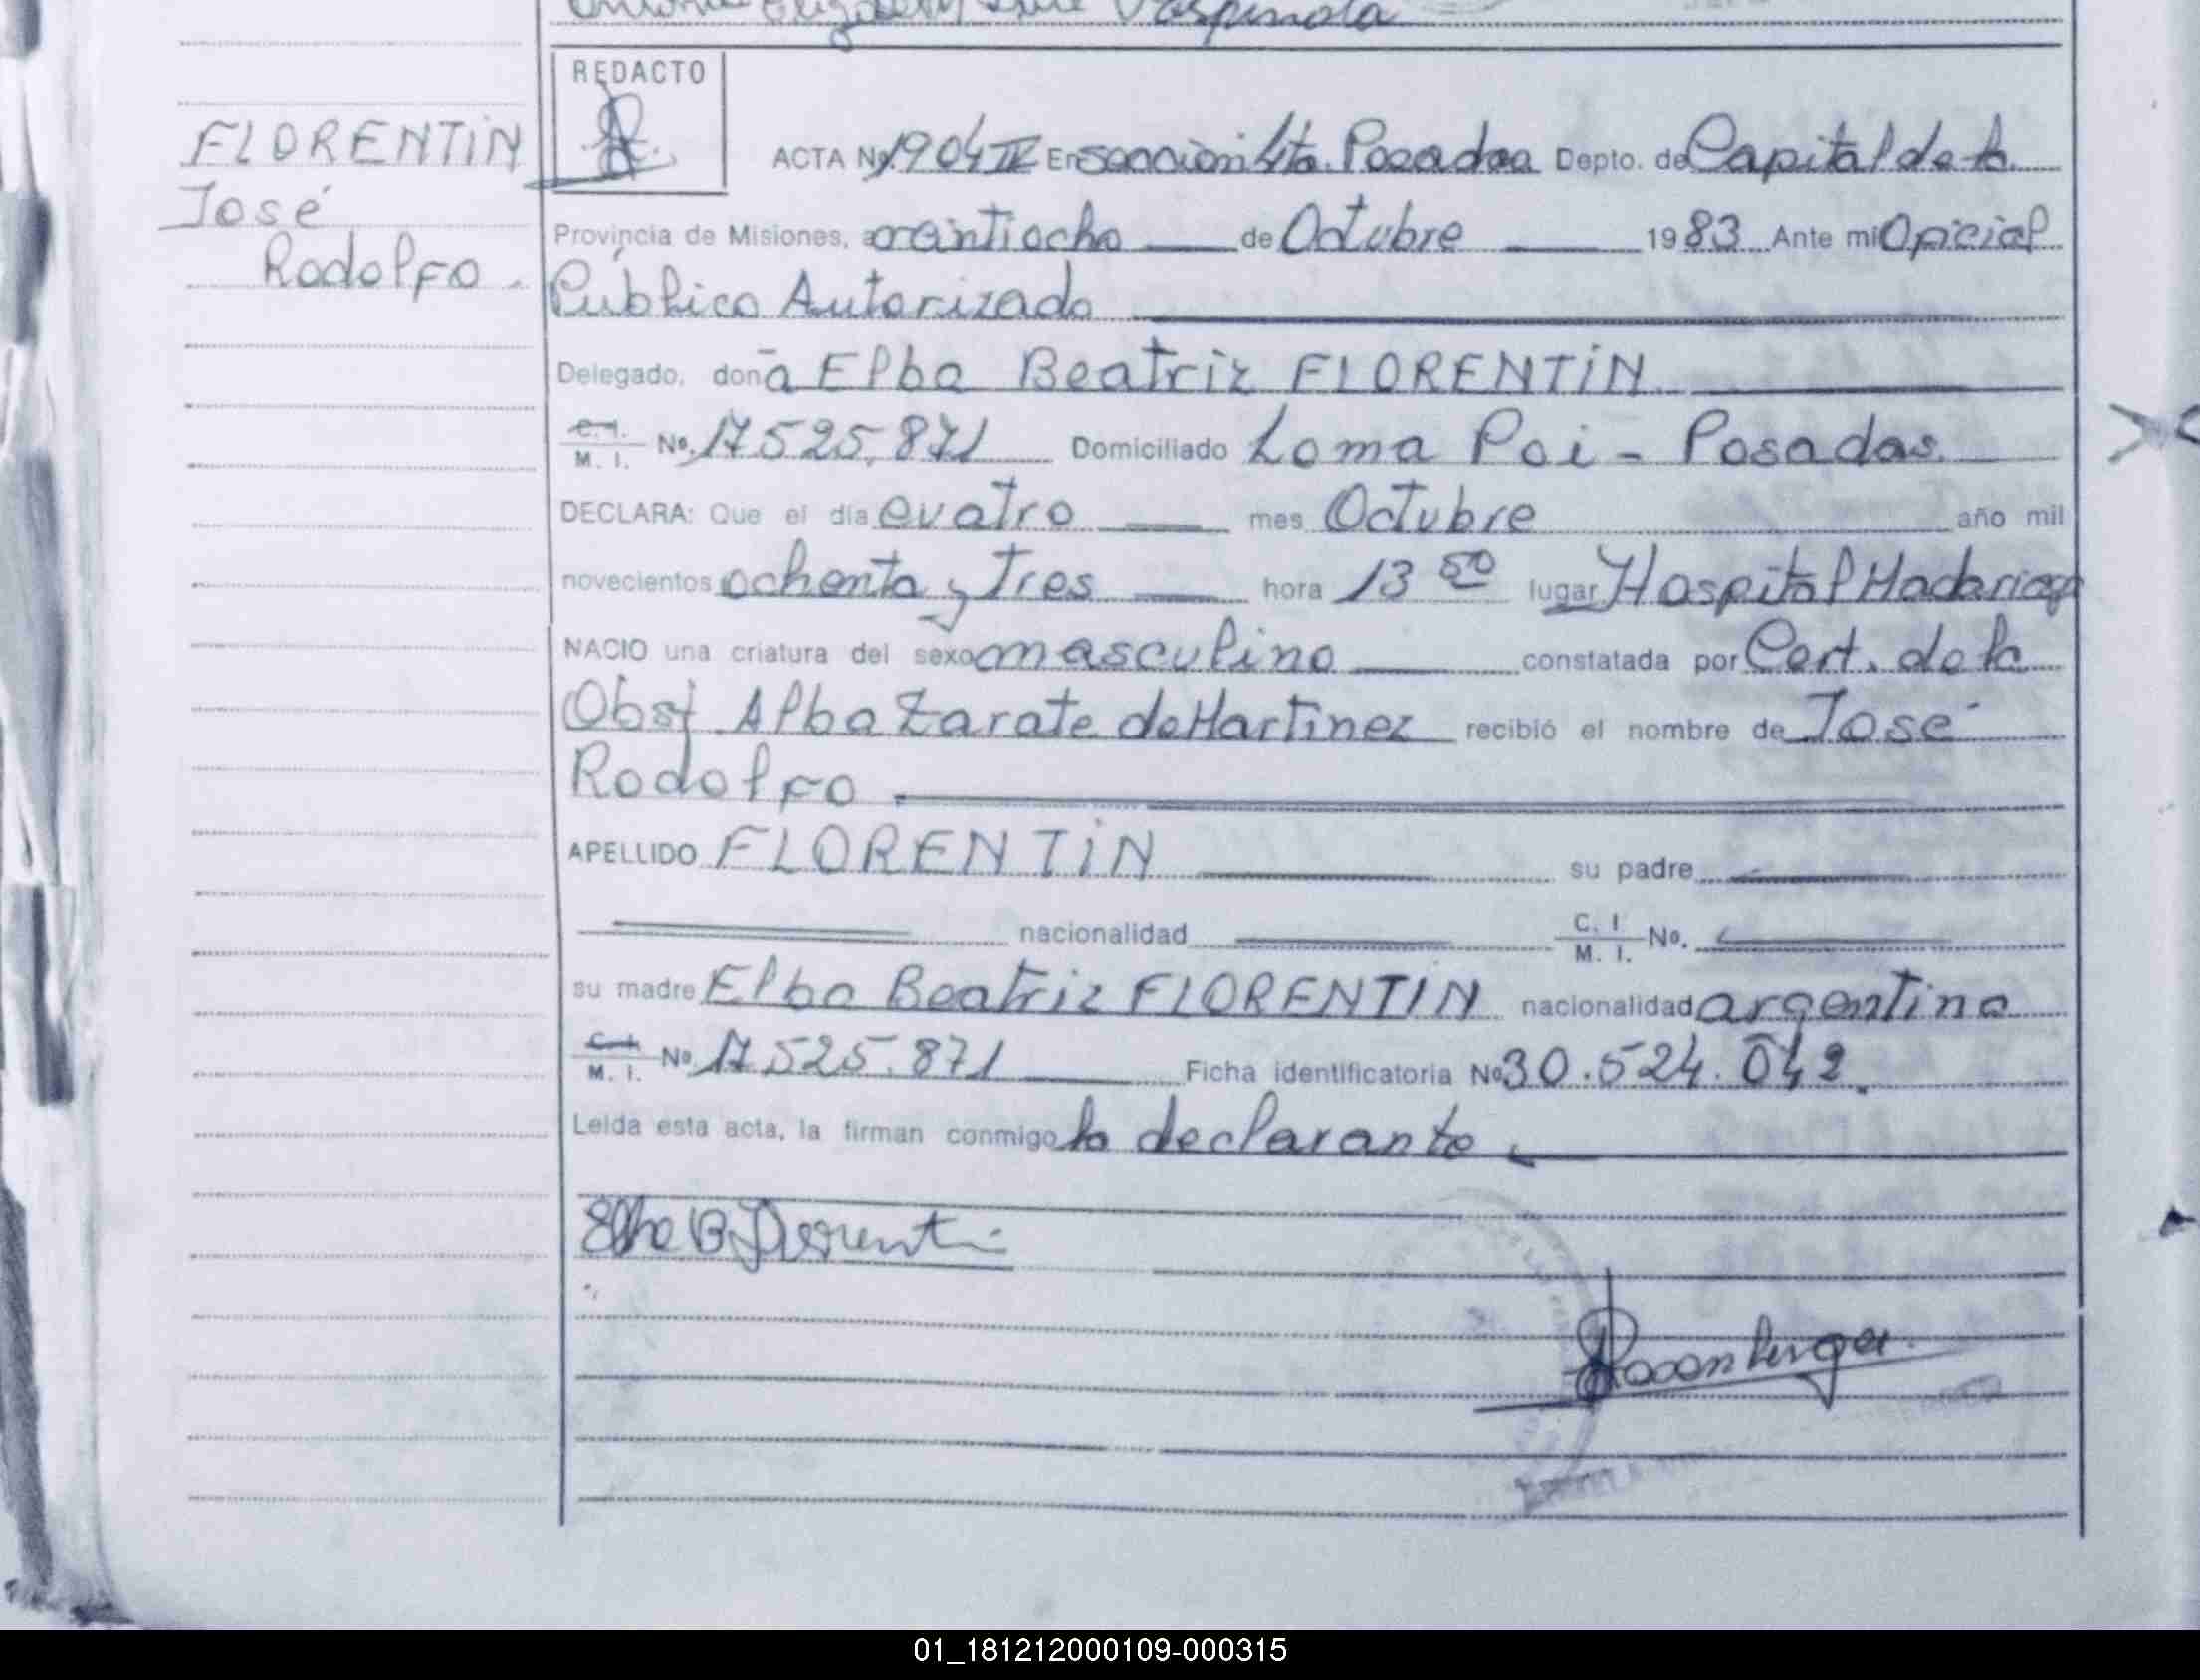 REDACTO
FLORENTIN
José
Rodolfo.
ACTA Nº 1904 IV En sección 4ta. Posadas Depto. de Capital de la
Provincia de Misiones, a veintiocho de Octubre 1983 Ante mi Oficial
Público Autorizado
Delegado, doña Elba Beatriz FLORENTIN
C.I. M. I. Nº. 17525.871 Domiciliado Loma Poi - Posadas.
DECLARA: Que el día cuatro mes Octubre año mil
novecientos ochenta y Tres hora 13 50 lugar Hospital Madariaga
NACIO una criatura del sexo masculino constatada por Cert. de la
Obst. Alba Zarate de Martinez recibió el nombre de José
Rodolfo
APELLIDO FLORENTIN su padre
nacionalidad C. I. M. I. Nº.
su madre Elba Beatriz FLORENTIN nacionalidad argentina
C.I. M. I. Nº 17525.871 Ficha identificatoria Nº 30.524.042.
Leida esta acta, la firman conmigo la declarante
Elba B. Florentin
01_181212000109-000315